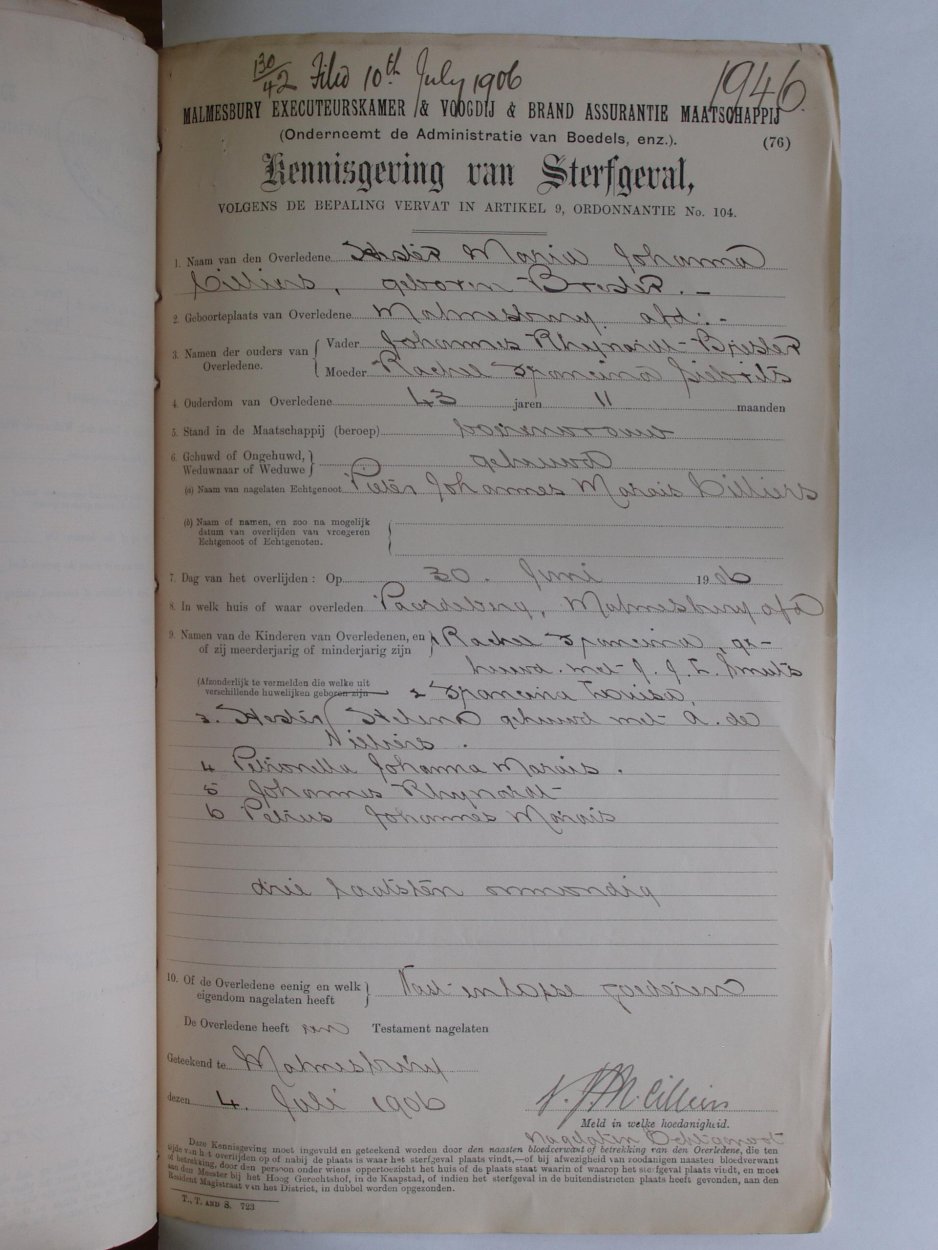 130/42 Filed 10th July 1906
1946.
MALMESBURY EXECUTEURSKAMER & VOOGDIJ & BRAND ASSURANTIE MAATSCHAPPIJ
(Onderneemt de Administratie van Boedels, enz.).
(76)
Kennisgeving van Sterfgeval,
VOLGENS DE BEPALING VERVAT IN ARTIKEL 9, ORDONNANTIE No. 104.
1. Naam van den Overledene Hester Maria Johanna
Cilliers, geboren Brester. –
2. Geboorteplaats van Overledene Malmesbury afd: -
3. Namen der ouders van Overledene. Vader Johannes Rhynardt Brester
Moeder Rachel Francina Siebrits
4. Ouderdom van Overledene 43 jaren 11 maanden
5. Stand in de Maatschappij (beroep) boerenvrouw
6. Gehuwd of Ongehuwd, Weduwnaar of Weduwe gehuwd
(a) Naam van nagelaten Echtgenoot Pieter Johannes Marais Cilliers
(b) Naam of namen, en zoo na mogelijk
datum van overlijden van vroegeren
Echtgenoot of Echtgenoten.
7. Dag van het overlijden: Op 30. Juni 1906
8. In welk huis of waar overleden Paardeberg, Malmesbury afd
9. Namen van de Kinderen van Overledenen, en Rachel Francina, ge-
of zij meerderjarig of minderjarig zijn huwd met J. J. L. Smuts
(Afzonderlijk te vermelden die welke uit
verschillende huwelijken geboren zijn 2 Francina Louisa,
3. Hester Helena gehuwd met A. de
Villiers.
4 Petronella Johanna Marais.
5 Johannes Rhynardt
6 Petrus Johannes Marais
drie laatsten onmondig
10. Of de Overledene eenig en welk
eigendom nagelaten heeft
De Overledene heeft een Testament nagelaten
Geteekend te Malmesbury
dezen 4. Juli 1906
P. J. M. Cilliers
Meld in welke hoedanigheid.
Nagelaten Echtgenoot
Deze Kennisgeving moet ingevuld en geteekend worden door den naasten bloedverwant of betrekking van den Overledene, die ten
tijde van het overlijden op of nabij de plaats is waar het sterfgeval plaats vindt,—of bij afwezigheid van zoodanigen naasten bloedverwant
of betrekking, door den persoon onder wiens oppertoezicht het huis of de plaats staat waarin of waarop het sterfgeval plaats vindt, en moet
aan den Meester bij het Hoog Gerechtshof, in de Kaapstad, of indien het sterfgeval in de buitendistricten plaats heeft gevonden, aan den
Resident Magistraat van het District, in dubbel worden opgezonden.
T., T. AND S. 723